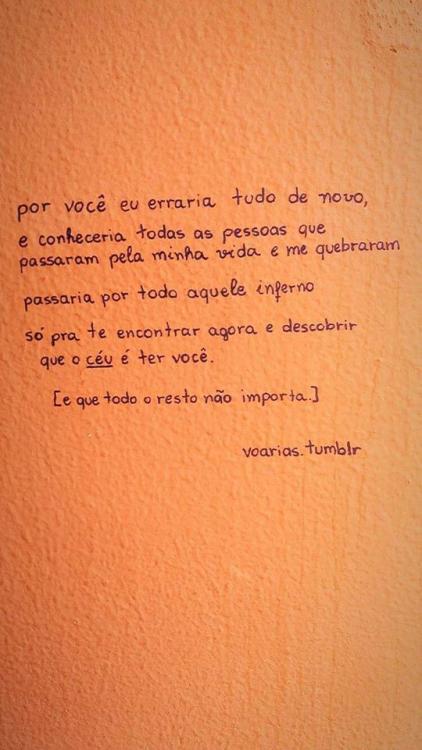 por você eu erraria tudo de novo,
e conheceria todas as pessoas que
passaram pela minha vida e me quebraram
passaria por todo aquele inferno
só pra te encontrar agora e descobrir
que o céu é ter você.
[e que todo o resto não importa.]
voarias.tumblr